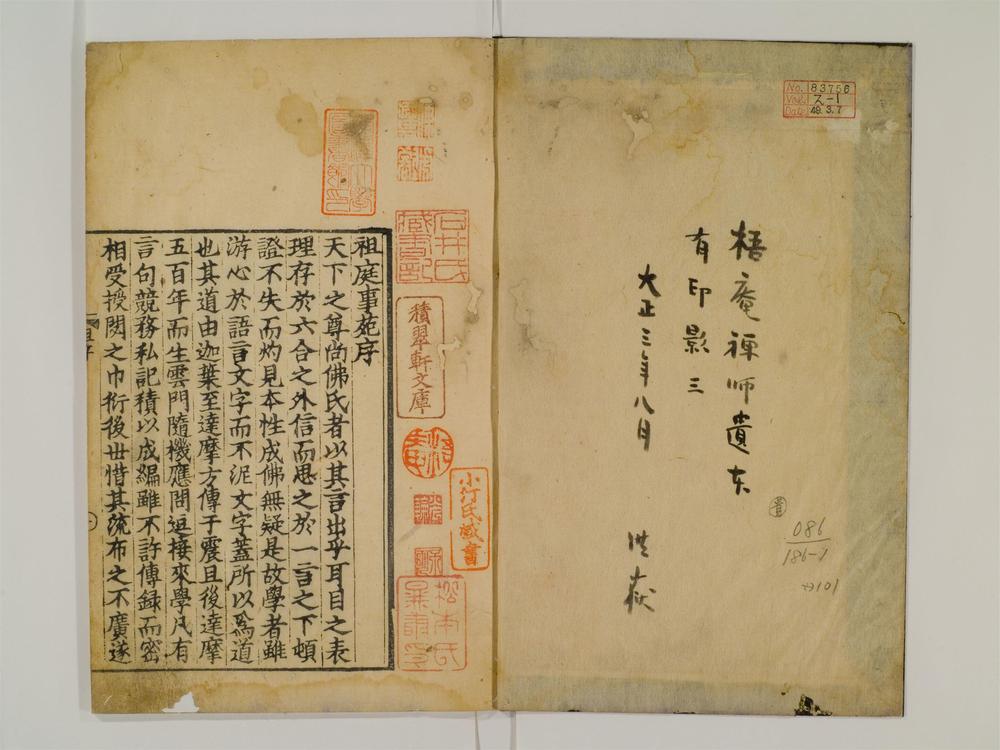 No. 83756
Vol. ス-1
Date 49.3.7
梧庵禅师遺东
有印影三
大正三年八月
洪荻
086
186-1
→101
石井氏
藏書記
積翠軒文庫
小汀氏藏書
松本氏
祖庭事苑序
天下之尊尚佛氏者以其言出乎耳目之表
理存於六合之外信而思之於一言之下頓
證不失而灼見本性成佛無疑是故學者雖
游心於語言文字而不泥文字蓋所以爲道
也其道由迦葉至達摩方傳于震旦後達摩
五百年而生雲門隨機應問逗接來學凡有
言句競務私記積以成編雖不許傳録而密
相受授閟之巾衍後世惜其流布之不廣遂